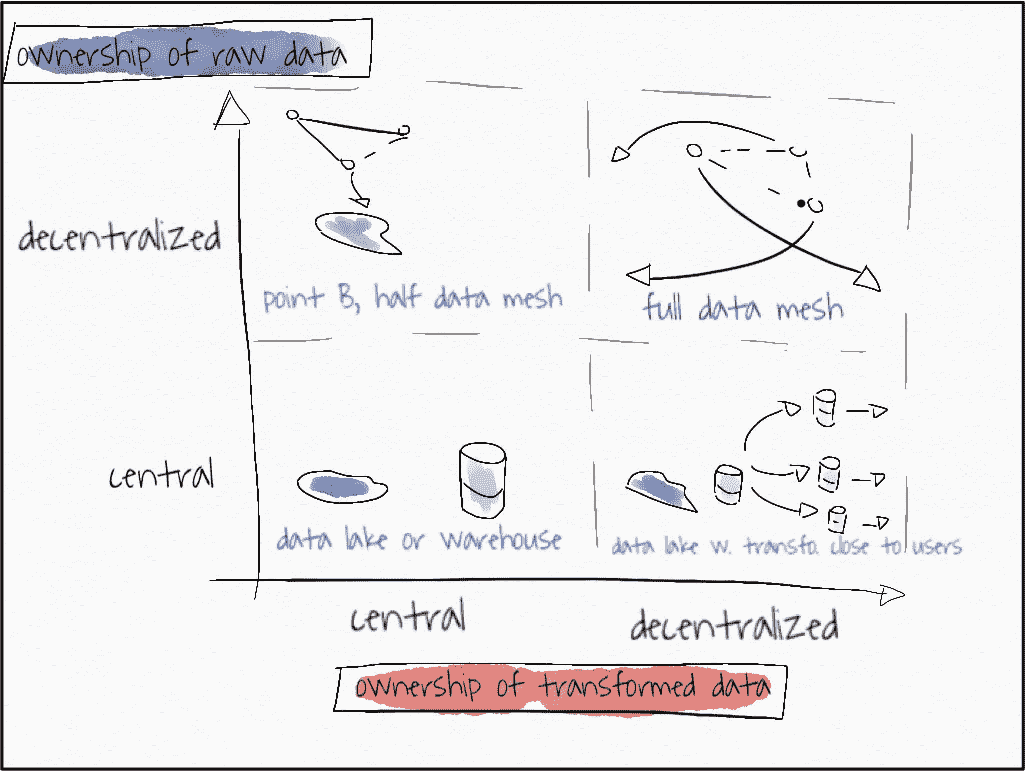 ownership of raw data
decentralized
point B, half data mesh
full data mesh
central
data lake or warehouse
data lake w. transfo. close to users
central
decentralized
ownership of transformed data